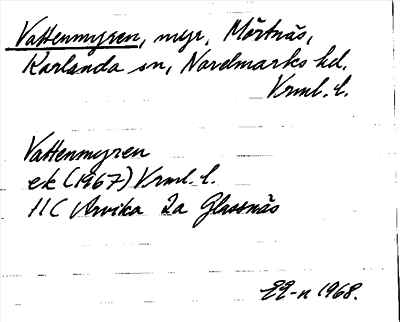 Vattenmyren, myr, Mörtnäs,
Karlanda sn, Nordmarks hd.
Vrml. l.
Vattenmyren
ek (1967) Vrml. l.
11C Arvika 2a Glassnäs
1968.